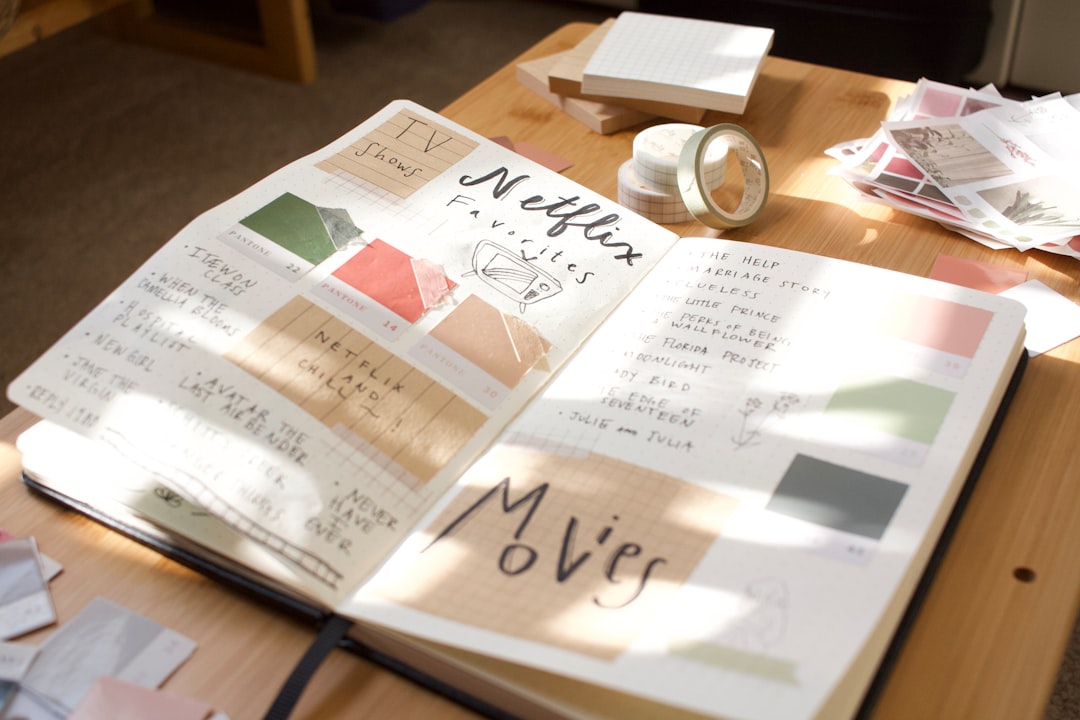 TV
Shows
Netflix
Favorites
PANTONE
22
PANTONE
14
PANTONE
30
• ITEWON
CLASS
• WHEN THE
CAMELLIA BLOOMS
• HOSPITAL
PLAYLIST
• NEW GIRL
• JANE THE
VIRGIN
• REPLY 1988
NETFLIX
AND
CHILL ~!
• AVATAR THE
LAST AIR BENDER
THINGS
• NEVER
HAVE
I
EVER
• THE HELP
MARRIAGE STORY
CLUELESS
THE LITTLE PRINCE
THE PERKS OF BEING
A WALLFLOWER
THE FLORIDA PROJECT
MOONLIGHT
LADY BIRD
EDGE OF
SEVENTEEN
• JULIE AND JULIA
Movies